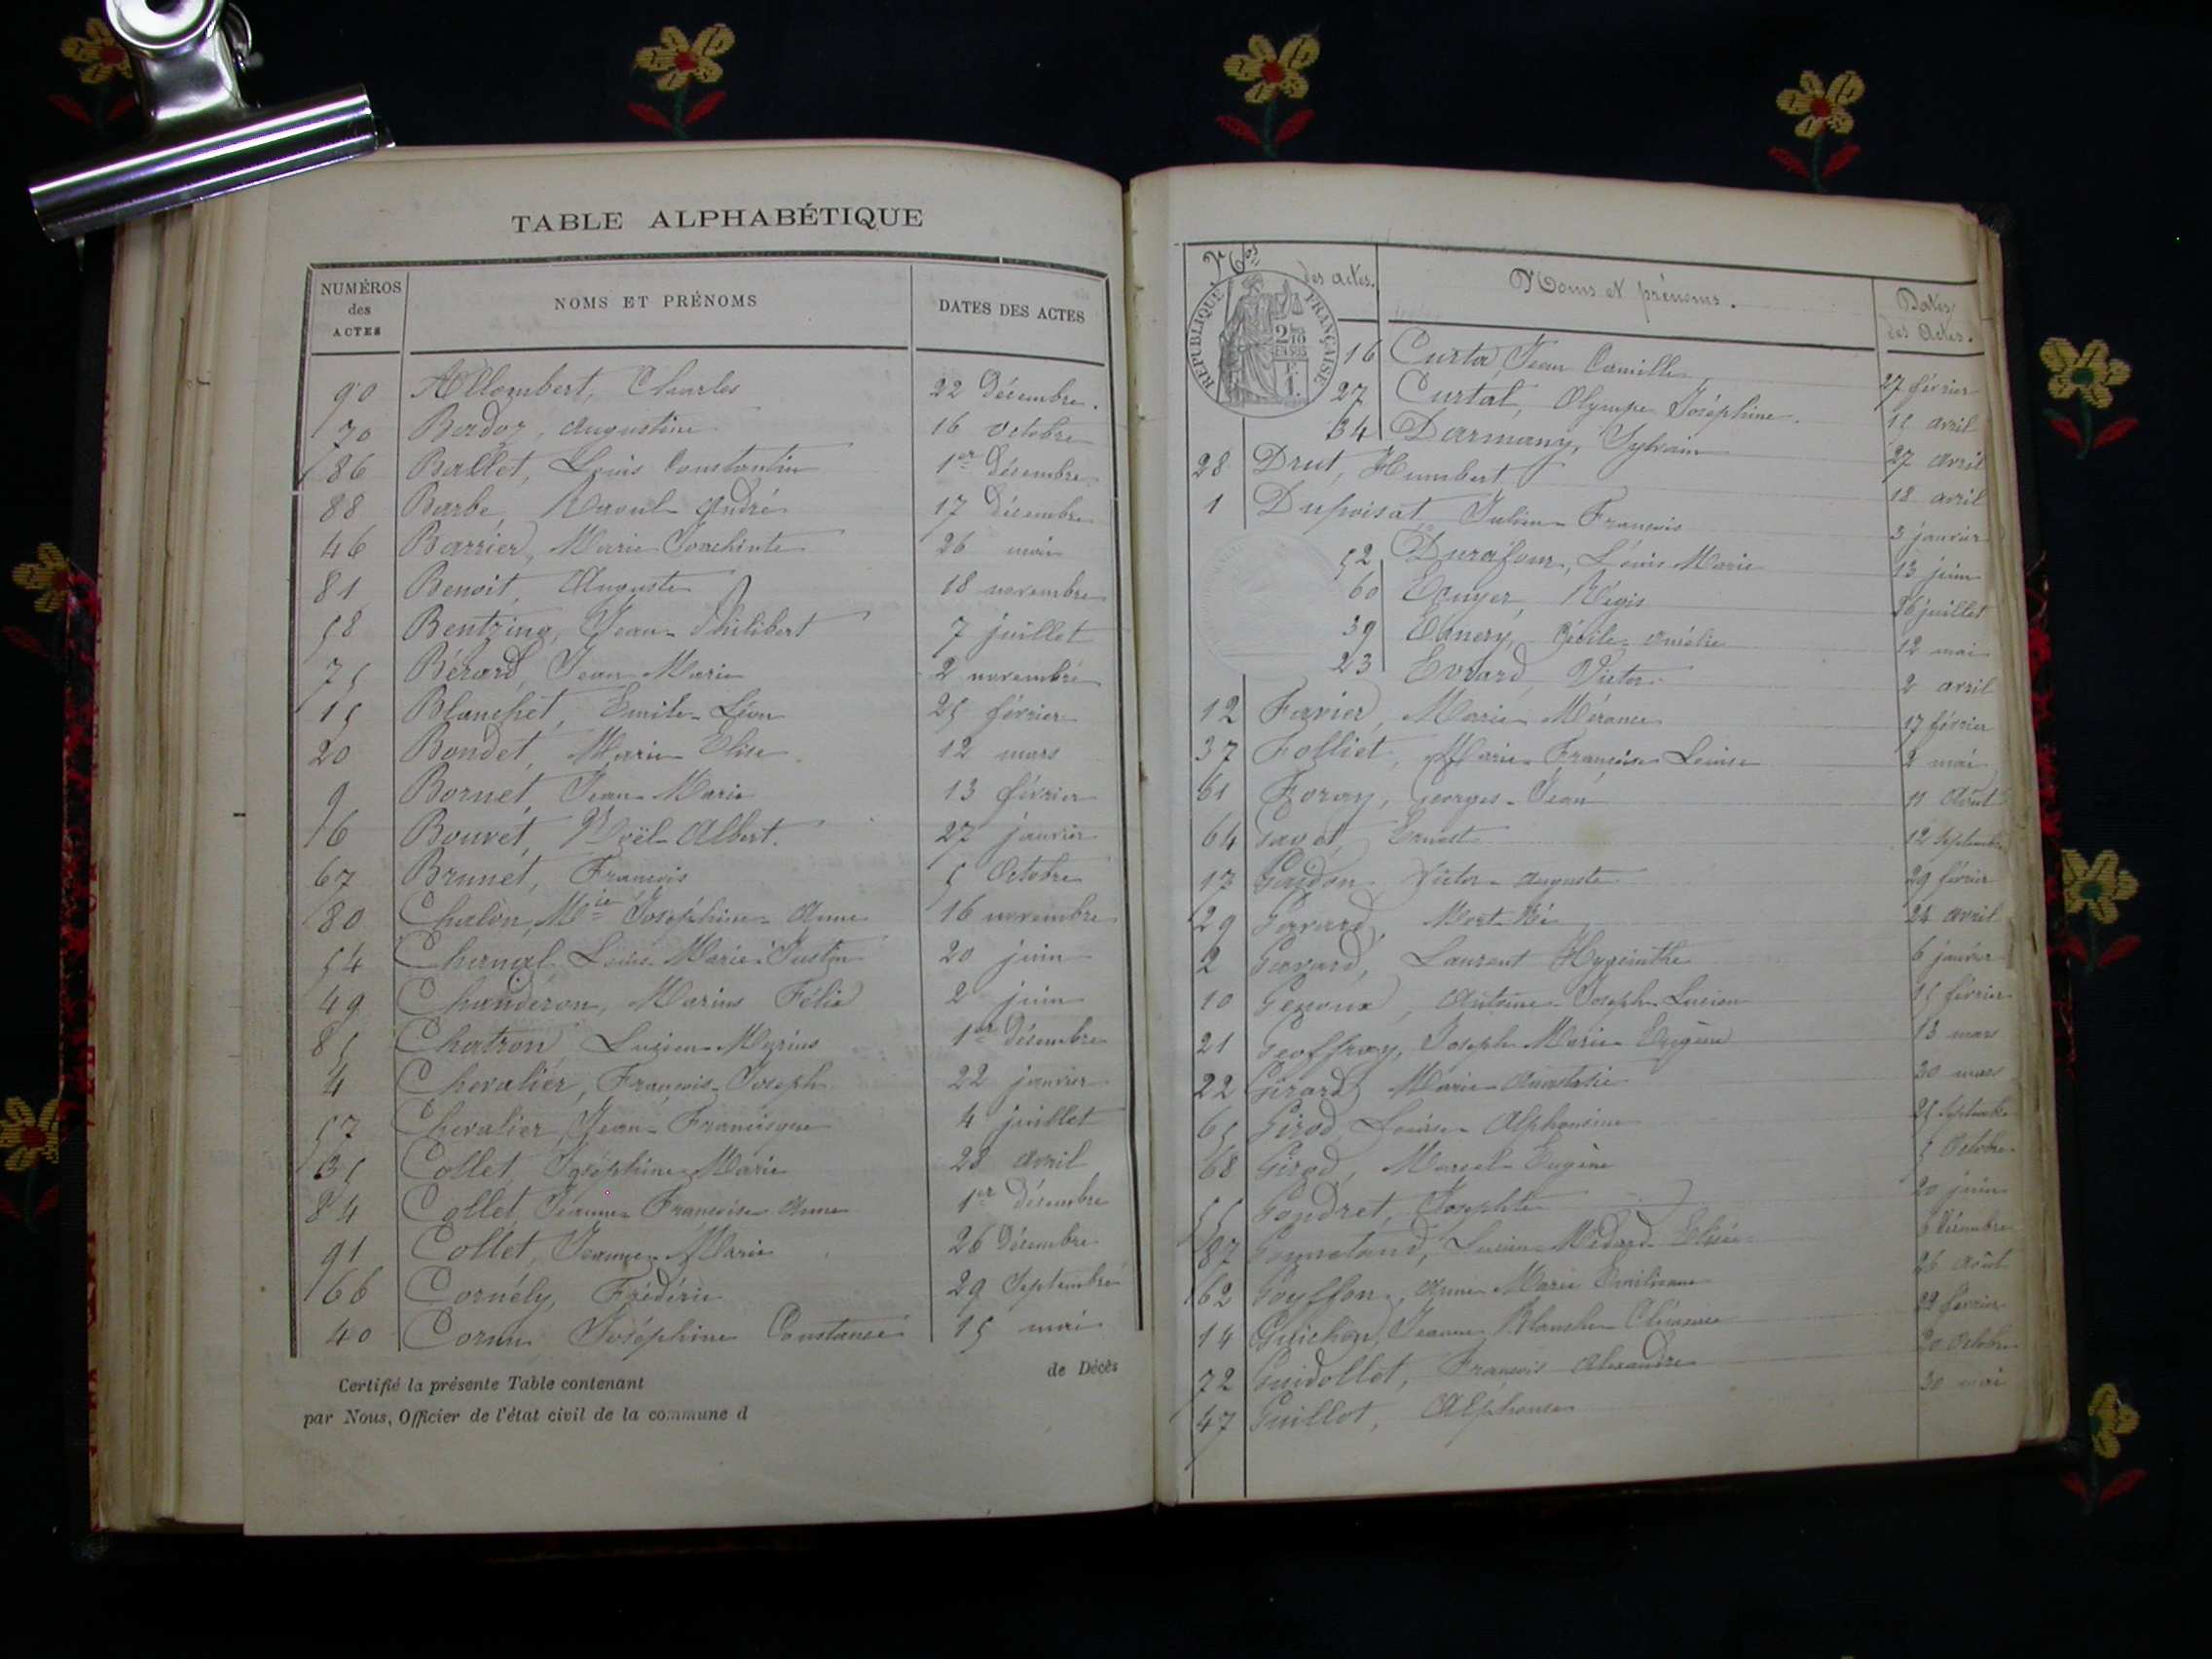 TABLE ALPHABÉTIQUE
NUMÉROS des ACTES NOMS ET PRÉNOMS DATES DES ACTES
90 Allombert, Charles 22 Décembre.
70 Badoz, Augustine 16 Octobre
86 Ballet, Louis Constantin 1er Décembre
88 Barbe, Raoul André 17 Décembre
46 Barrier, Marie Joachinte 26 mai
81 Benoit, Auguste 18 novembre
58 Bentzing, Jean-Philibert 7 juillet
75 Bérard, Jean-Marie 2 novembre
15 Blanchet, Emile-Léon 25 février
20 Bondet, Marie Elise 12 mars
9 Bornet, Jean-Marie 13 février
6 Bouvet, Noël-Albert. 27 janvier
67 Brunet, François 5 Octobre
80 Chalon, Mie Joséphine-Anne 16 novembre
54 Charnal Louis-Marie-Justin 20 juin
49 Chaudéron, Marius Félix 2 juin
85 Chatron, Lucien-Marius 1er Décembre
4 Chevalier, François-Joseph 22 janvier
57 Chevalier Jean-Francisque 4 juillet
35 Collet, Joséphine-Marie 28 avril
84 Collet, Jeanne-Françoise-Anne 1er Décembre
91 Collet, Jeanne-Marie 26 Décembre
66 Cornély, Frédéric 29 Septembre
40 Cornu Joséphine Constance 15 mai
de Décès
Certifié la présente Table contenant
par Nous, Officier de l'état civil de la commune d
Nos des actes. Noms et prénoms. Dates des Actes.
RÉPUBLIQUE FRANÇAISE
16 Curta, Jean Camille 27 février
27 Curtat, Olympe Joséphine. 11 avril
34 Darmany, Sylvain 27 avril
28 Drut, Humbert 18 avril
1 Dupoisat Julien-François 3 janvier
52 Durafour, Louis Marie 13 juin
60 Ecuyer, Régis juillet
39 Cécile-Amélie 12 mai
23 Evrard, Victor 2 avril
12 Favier, Marie 17 février
37 Folliet, Marie-Françoise-Louise 2 mai
61 Foray, Georges-Jean 11 Août
64 Gavet, Ernest 12 Septembre
17 Gaidon Victor-Auguste 29 février
29 Gavard, Mort-Né 24 avril
2 Gavard, Laurent Hyacinthe 6 janvier
10 Genoux, Antoine-Joseph-Lucien 15 février
21 Geoffray, Joseph-Marie-Eugène 13 mars
22 Girard, Marie-Anastasie 30 mars
65 Girod, Louise-Alphonsine 25 Septembre
68 Girod, Marcel-Eugène Octobre
55 Gondret, Josephte 20 juin
87 Lucien-Médard-Elisée Décembre
62 Gouffon, Anne-Marie Emilienne 26 août
14 Guichon, Jeanne Blanche-Clémence 22 février
72 Guidollet, François Alexandre 20 Octobre
47 Guillot, Alphonse 30 mai